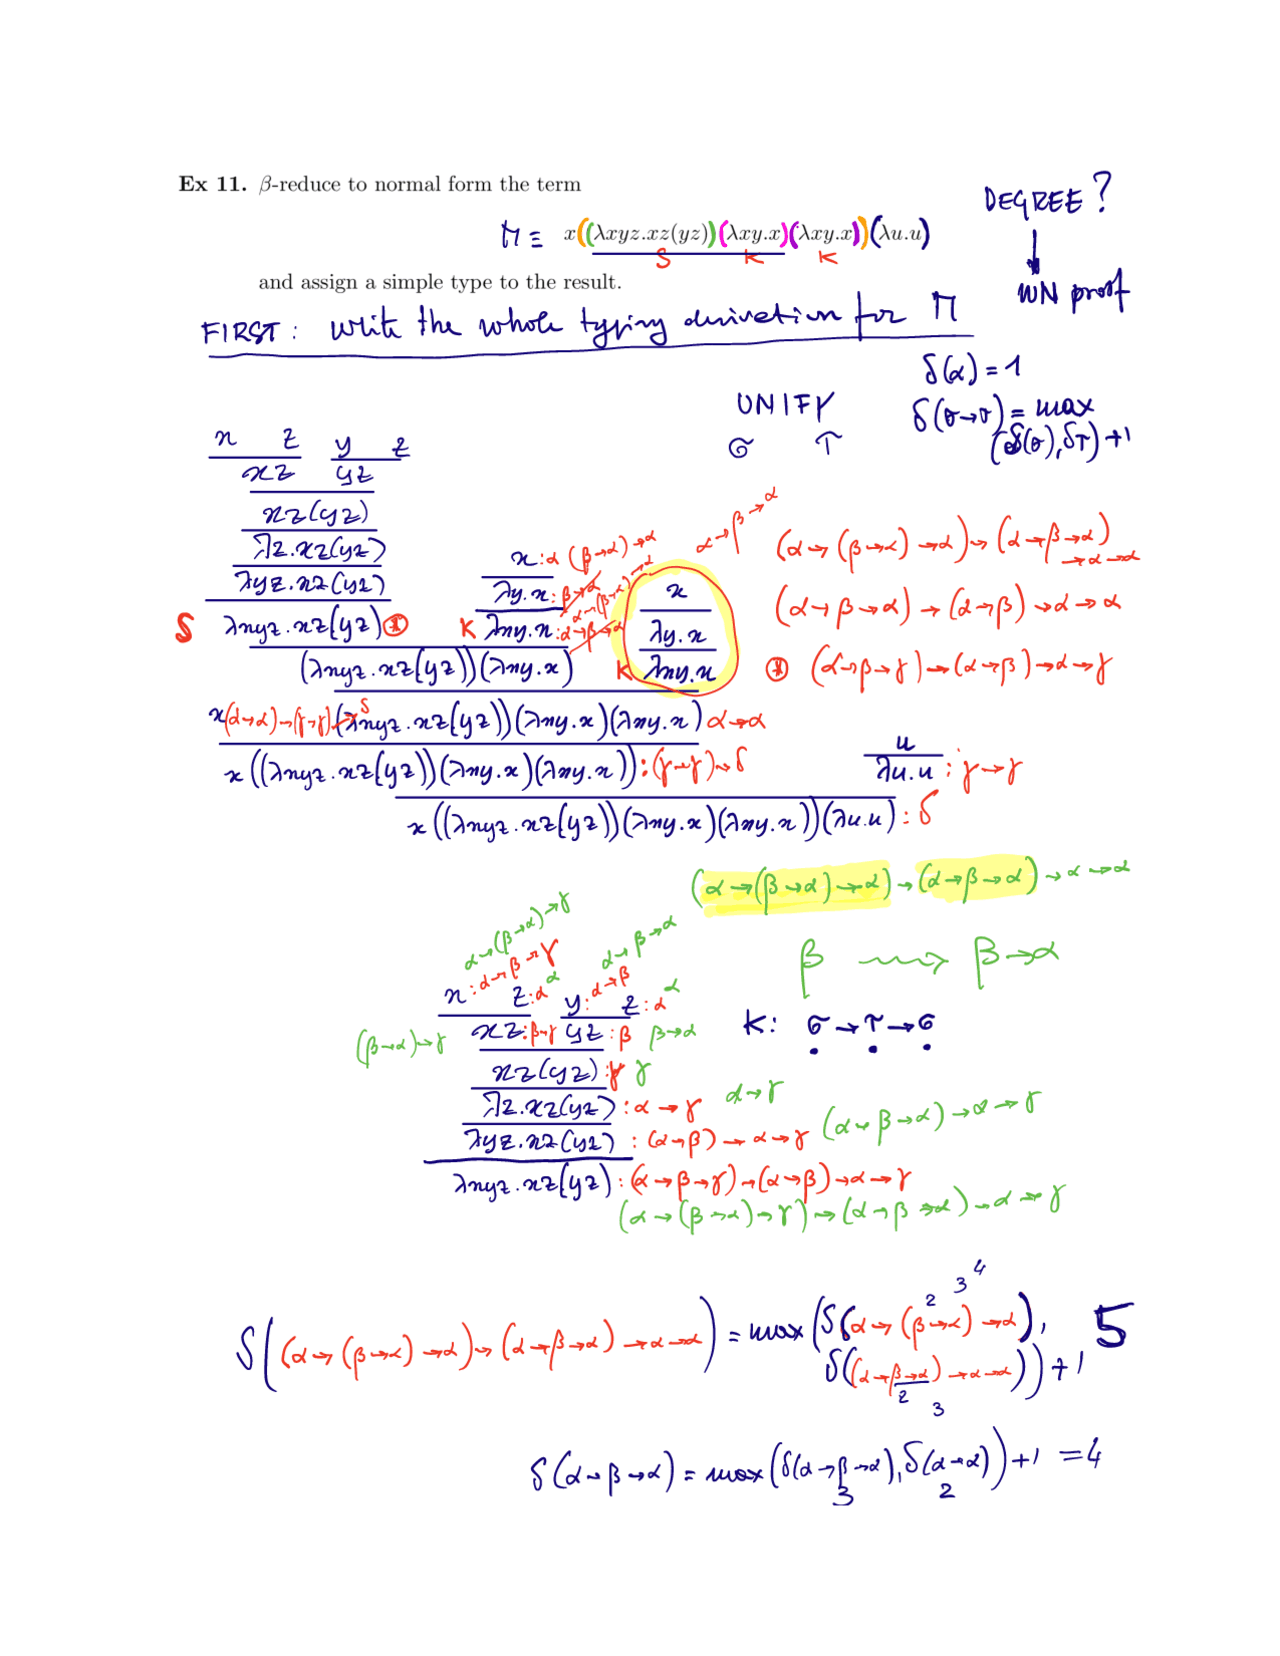 Ex 11. β-reduce to normal form the term
DEGREE?
M ≡ x((λxyz.xz(yz))(λxy.x)(λxy.x))(λu.u)
S K K
and assign a simple type to the result.
WN proof
FIRST: write the whole typing derivation for M
δ(α) = 1
UNIFY
δ(σ→τ) = max
σ τ
(δ(σ), δτ) +1
x z y z
xz yz
xz(yz)
λz.xz(yz)
λyz.xz(yz)
S λxyz.xz(yz) *
x:α (β→α)→α
λy.x: β→α
K λxy.x: α→β→α
α→β→α
x
λy.x
K λxy.x
(α→(β→α)→α)→(α→β→α)→α→α
(α→β→α)→(α→β)→α→α
* (α→β→γ)→(α→β)→α→γ
(λxyz.xz(yz))(λxy.x)
x(α→α)→(γ→γ)→δ (λxyz.xz(yz))(λxy.x)(λxy.x) α→α
x((λxyz.xz(yz))(λxy.x)(λxy.x)):(γ→γ)→δ
u
λu.u : γ→γ
x((λxyz.xz(yz))(λxy.x)(λxy.x))(λu.u) : δ
(α→(β→α)→α)→(α→β→α)→α→α
β ⟿ β→α
K: σ→τ→σ
α→(β→α)→γ α→β→α
x:α→β→γ z:α α y:α→β z:α α
(β→α)→γ xz:β→γ yz:β β→α
xz(yz):γ γ
λz.xz(yz): α→γ α→γ
λyz.xz(yz) : (α→β)→α→γ (α→β→α)→α→γ
λxyz.xz(yz): (α→β→γ)→(α→β)→α→γ
(α→(β→α)→γ)→(α→β→α)→α→γ
2 3 4
δ((α→(β→α)→α)→(α→β→α)→α→α) = max(δ(α→(β→α)→α), 5
δ((α→β→α)→α→α)) +1
2 3
δ(α→β→α) = max(δ(α→β→α), δ(α→α)) +1 = 4
3 2